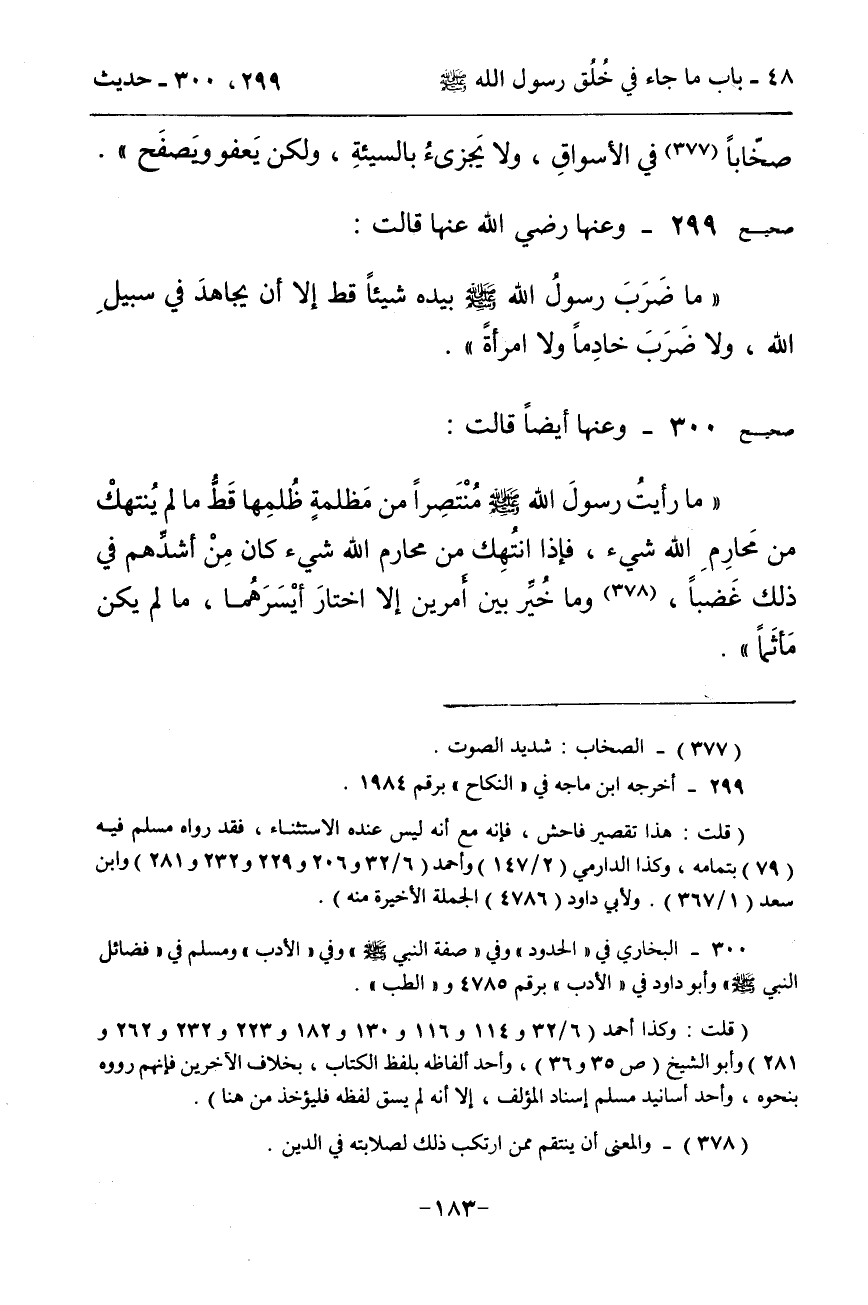 ٤٨ ـ باب ما جاء في خُلُق رسول الله ﷺ ٢٩٩، ٣٠٠ ـ حديث
صخّاباً (٣٧٧) في الأسواقِ ، ولا يَجزىءُ بالسيئةِ ، ولكن يَعفو ويَصفَح » .
صحيح ٢٩٩ ـ وعنها رضي الله عنها قالت :
« ما ضَرَبَ رسولُ الله ﷺ بيده شيئاً قط إلا أن يجاهدَ في سبيلِ
الله ، ولا ضَرَبَ خادِماً ولا امرأةً » .
صحيح ٣٠٠ ـ وعنها أيضاً قالت :
« ما رأيتُ رسولَ الله ﷺ مُنْتَصِراً من مَظلمةٍ ظُلمِها قَطُّ ما لم يُنتهكْ
من مَحارِمِ الله شيء ، فإذا انتُهِك من محارم الله شيء كان مِنْ أشدِّهم في
ذلك غَضباً ، (٣٧٨) وما خُيِّر بين أَمرين إلا اختارَ أيْسَرَهُما ، ما لم يكن
مَأثَماً » .
( ٣٧٧ ) ـ الصخاب : شديد الصوت .
٢٩٩ ـ أخرجه ابن ماجه في « النكاح » برقم ١٩٨٤ .
( قلت : هذا تقصير فاحش ، فإنه مع أنه ليس عنده الاستثناء ، فقد رواه مسلم فيه
( ٧٩ ) بتمامه ، وكذا الدارمي ( ١٤٧/٢ ) وأحمد ( ٣٢/٦ و ٢٠٦ و ٢٢٩ و ٢٣٢ و ٢٨١ ) وابن
سعد ( ٣٦٧/١ ) . ولأبي داود ( ٤٧٨٦ ) الجملة الأخيرة منه ) .
٣٠٠ ـ البخاري في « الحدود » وفي « صفة النبي ﷺ » وفي « الأدب » ومسلم في « فضائل
النبي ﷺ » وأبو داود في « الأدب » برقم ٤٧٨٥ و « الطب » .
( قلت : وكذا أحمد ( ٣٢/٦ و ١١٤ و ١١٦ و ١٣٠ و ١٨٢ و ٢٢٣ و ٢٣٢ و ٢٦٢ و
٢٨١ ) وأبو الشيخ ( ص ٣٥ و ٣٦ ) ، وأحد ألفاظه بلفظ الكتاب ، بخلاف الآخرين فإنهم رووه
بنحوه ، وأحد أسانيد مسلم إسناد المؤلف ، إلا أنه لم يسق لفظه فليؤخذ من هنا ) .
( ٣٧٨ ) ـ والمعنى أن ينتقم ممن ارتكب ذلك لصلابته في الدين .
-١٨٣-